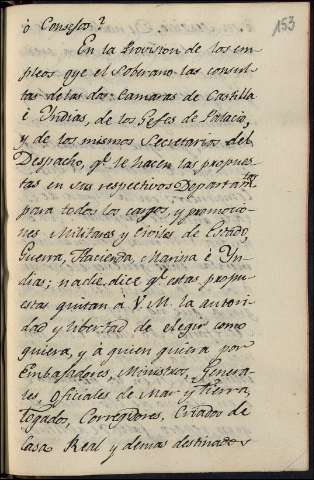 153
ò Consejos?
En la Provision de los em-
pleos oye el Soberano las consul-
tas de las dos Camaras de Castilla
è Indias, de los Gefes de Palacio,
y de los mismos Secretarios del
Despacho, qe. le hacen las propues-
tas en sus respectivos Departamtos.
para todos los cargos, y promocio-
nes Militares y Civiles de Estado
Guerra, Hacienda, Marina è Yn-
dias; nadie dice qe. estas propu-
estas quitan à V. M. la autori-
dad y libertad de elegir como
quiera, y à quien quiera por
Embajadores, Ministros, Genera-
les, Oficiales de Mar y Tierra,
Togados, Corregidores, Criados de
Casa Real y demas destinados